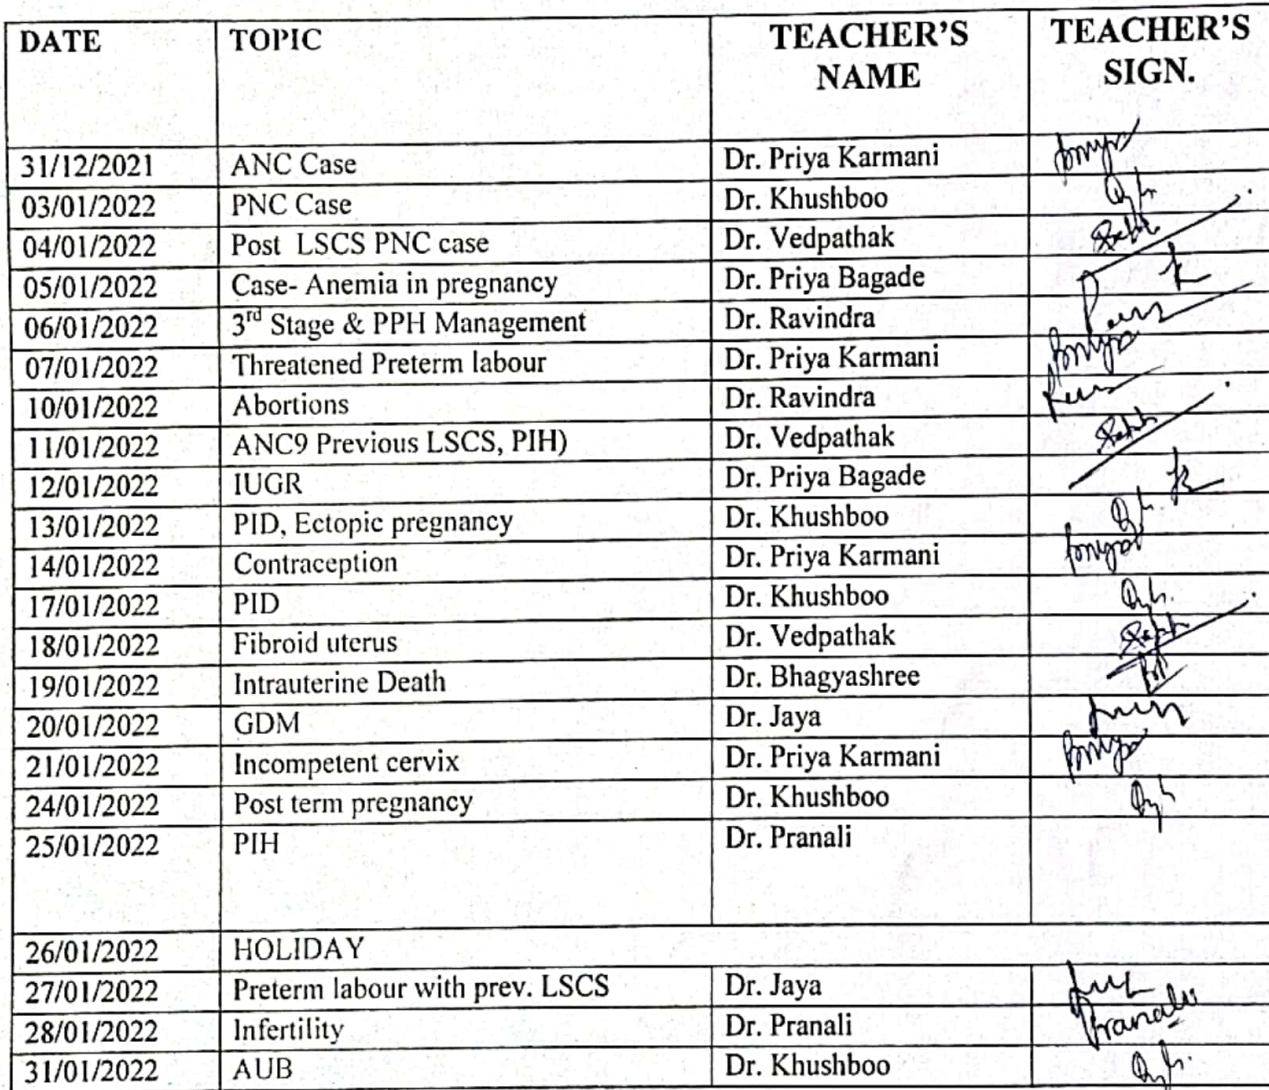 DATE TOPIC TEACHER'S NAME TEACHER'S SIGN.
31/12/2021 ANC Case Dr. Priya Karmani
03/01/2022 PNC Case Dr. Khushboo
04/01/2022 Post LSCS PNC case Dr. Vedpathak
05/01/2022 Case- Anemia in pregnancy Dr. Priya Bagade
06/01/2022 3rd Stage & PPH Management Dr. Ravindra
07/01/2022 Threatened Preterm labour Dr. Priya Karmani
10/01/2022 Abortions Dr. Ravindra
11/01/2022 ANC9 Previous LSCS, PIH) Dr. Vedpathak
12/01/2022 IUGR Dr. Priya Bagade
13/01/2022 PID, Ectopic pregnancy Dr. Khushboo
14/01/2022 Contraception Dr. Priya Karmani
17/01/2022 PID Dr. Khushboo
18/01/2022 Fibroid uterus Dr. Vedpathak
19/01/2022 Intrauterine Death Dr. Bhagyashree
20/01/2022 GDM Dr. Jaya
21/01/2022 Incompetent cervix Dr. Priya Karmani
24/01/2022 Post term pregnancy Dr. Khushboo
25/01/2022 PIH Dr. Pranali
26/01/2022 HOLIDAY
27/01/2022 Preterm labour with prev. LSCS Dr. Jaya
28/01/2022 Infertility Dr. Pranali Pranali
31/01/2022 AUB Dr. Khushboo